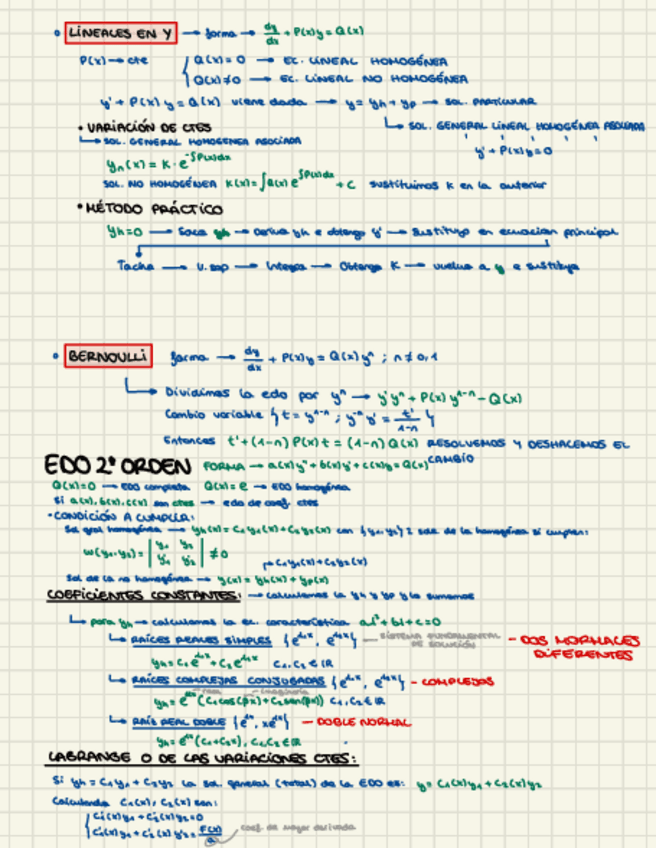 • LINEALES EN Y → forma → dy/dx + P(x)y = Q(x)
P(x) → cte { Q(x) = 0 → EC. LINEAL HOMOGÉNEA
Q(x) ≠ 0 → EC. LINEAL NO HOMOGÉNEA
y' + P(x) y = Q(x) viene dada → y = yh + yp → SOL. PARTICULAR
↳ SOL. GENERAL LINEAL HOMOGÉNEA ASOCIADA
y' + P(x)y = 0
• VARIACIÓN DE CTES
↳ SOL. GENERAL HOMOGENEA ASOCIADA
yh(x) = K · e^-∫P(x)dx
SOL. NO HOMOGÉNEA K(x) = ∫Q(x) e^∫P(x)dx + C sustituimos K en la anterior
• MÉTODO PRÁCTICO
yh = 0 → Saco yh → Deriva yh e obtengo y' → Sustituyo en ecuacion principal
Tacha → V. sep → Integra → Obtengo K → vuelvo a y e sustituyo
• BERNOULLI forma → dy/dx + P(x)y = Q(x)y^n ; n ≠ 0,1
↳ Dividimos la edo por y^n → y'y^n + P(x) y^1-n = Q(x)
Cambio variable { t = y^1-n ; y^-n y' = t'/1-n }
Entonces t' + (1-n) P(x) t = (1-n) Q(x) RESOLVEMOS Y DESHACEMOS EL CAMBIO
EDO 2º ORDEN FORMA → a(x)y'' + b(x)y' + c(x)y = Q(x)
Q(x) = 0 → EDO completa Q(x) = e → EDO homogénea
Si a(x), b(x), c(x) son ctes → edo de coef. ctes
• CONDICIÓN A CUMPLIR:
Sol gral homogénea → yh(x) = C1y1(x) + C2y2(x) con {y1, y2} 2 sols. de la homogénea si cumplen:
W(y1, y2) = | y1 y2 |
| y1' y2' | ≠ 0
C1y1(x) + C2y2(x)
Sol de la no homogénea → y(x) = yh(x) + yp(x)
COEFICIENTES CONSTANTES: → calculamos la yh y yp y la sumamos
↳ para yh → calculamos la ec. característica aλ² + bλ + c = 0
↳ RAÍCES REALES SIMPLES {e^λ1x, e^λ2x} — SISTEMA FUNDAMENTAL DE SOLUCIÓN - DOS NORMALES DIFERENTES
yh = C1e^λ1x + C2e^λ2x C1, C2 ∈ ℝ
↳ RAÍCES COMPLEJAS CONJUGADAS {e^λ1x, e^λ2x} - COMPLEJOS
yh = e^αx (C1cos(βx) + C2sen(βx)) C1, C2 ∈ ℝ
↳ RAÍZ REAL DOBLE {e^λx, xe^λx} — DOBLE NORMAL
yh = e^λx (C1 + C2x), C1, C2 ∈ ℝ
LAGRANGE O DE LAS VARIACIONES CTES:
Si yh = C1y1 + C2y2 la sol. general (total) de la EDO es: y = C1(x)y1 + C2(x)y2
Calculando C1(x), C2(x) son:
{ C1'(x)y1 + C2'(x)y2 = 0
C1'(x)y1' + C2'(x)y2' = F(x)/a coef. de mayor derivada